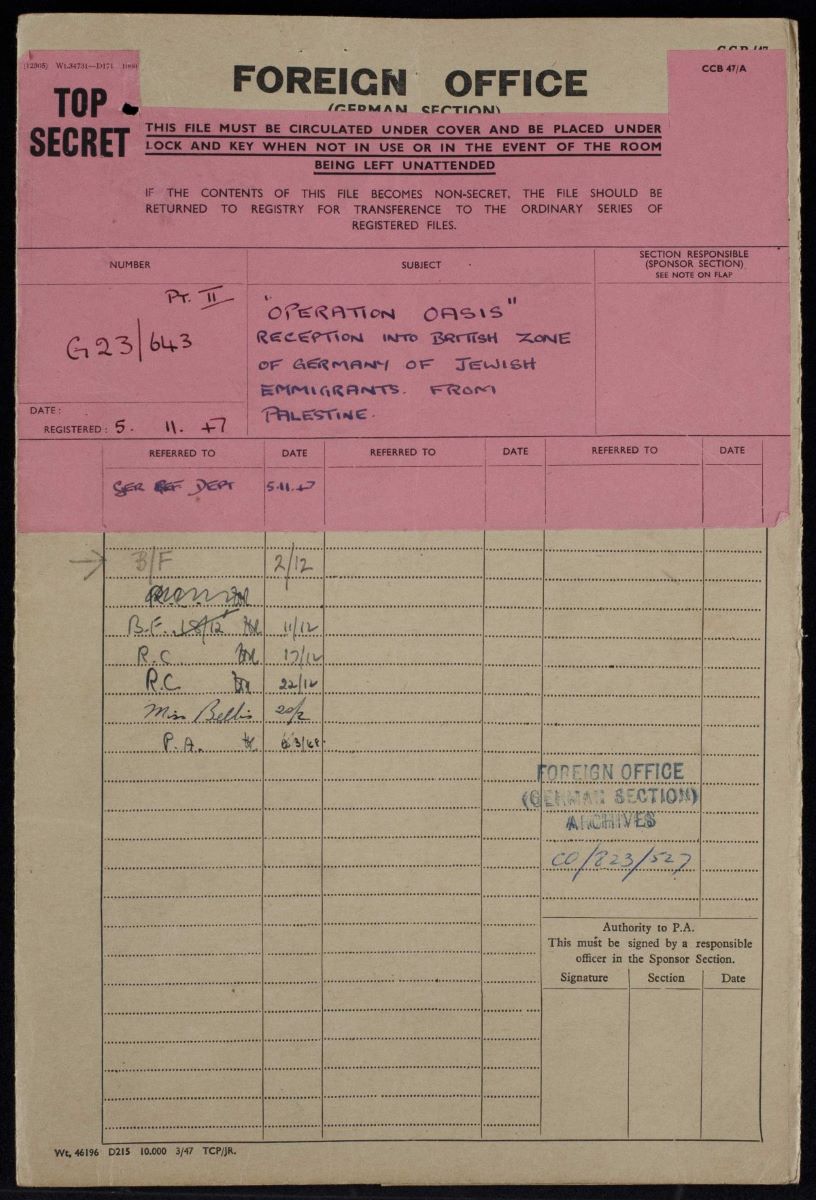 (12305) Wt.34731—D171
CCB 47/A
FOREIGN OFFICE
(GERMAN SECTION)
TOP
SECRET
THIS FILE MUST BE CIRCULATED UNDER COVER AND BE PLACED UNDER
LOCK AND KEY WHEN NOT IN USE OR IN THE EVENT OF THE ROOM
BEING LEFT UNATTENDED
IF THE CONTENTS OF THIS FILE BECOMES NON-SECRET, THE FILE SHOULD BE
RETURNED TO REGISTRY FOR TRANSFERENCE TO THE ORDINARY SERIES OF
REGISTERED FILES.
NUMBER
SUBJECT
SECTION RESPONSIBLE
(SPONSOR SECTION)
SEE NOTE ON FLAP
PT. II
G23/643
"OPERATION OASIS"
RECEPTION INTO BRITISH ZONE
OF GERMANY OF JEWISH
EMMIGRANTS. FROM
PALESTINE.
DATE:
REGISTERED: 5. 11. 47
REFERRED TO DATE REFERRED TO DATE REFERRED TO DATE
GER REF DEPT 5.11.47
B/F 2/12
B.F. 18/12 11/12
R.C. 17/12
R.C. 22/12
Miss Bellis 20/2
P.A. 3/48.
FOREIGN OFFICE
(GERMAN SECTION)
ARCHIVES
CO/823/527
Authority to P.A.
This must be signed by a responsible
officer in the Sponsor Section.
Signature Section Date
Wt. 46196 D215 10.000 3/47 TCP/JR.